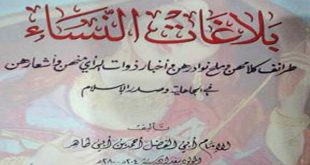 بلاغات النساء
طرائف كلامهن وملح نوادرهن وأخبار ذوات الرأي منهن وأشعارهن
في الجاهلية وصدر الإسلام
تأليف
الإمام أبي الفضل أحمد بن أبي طاهر